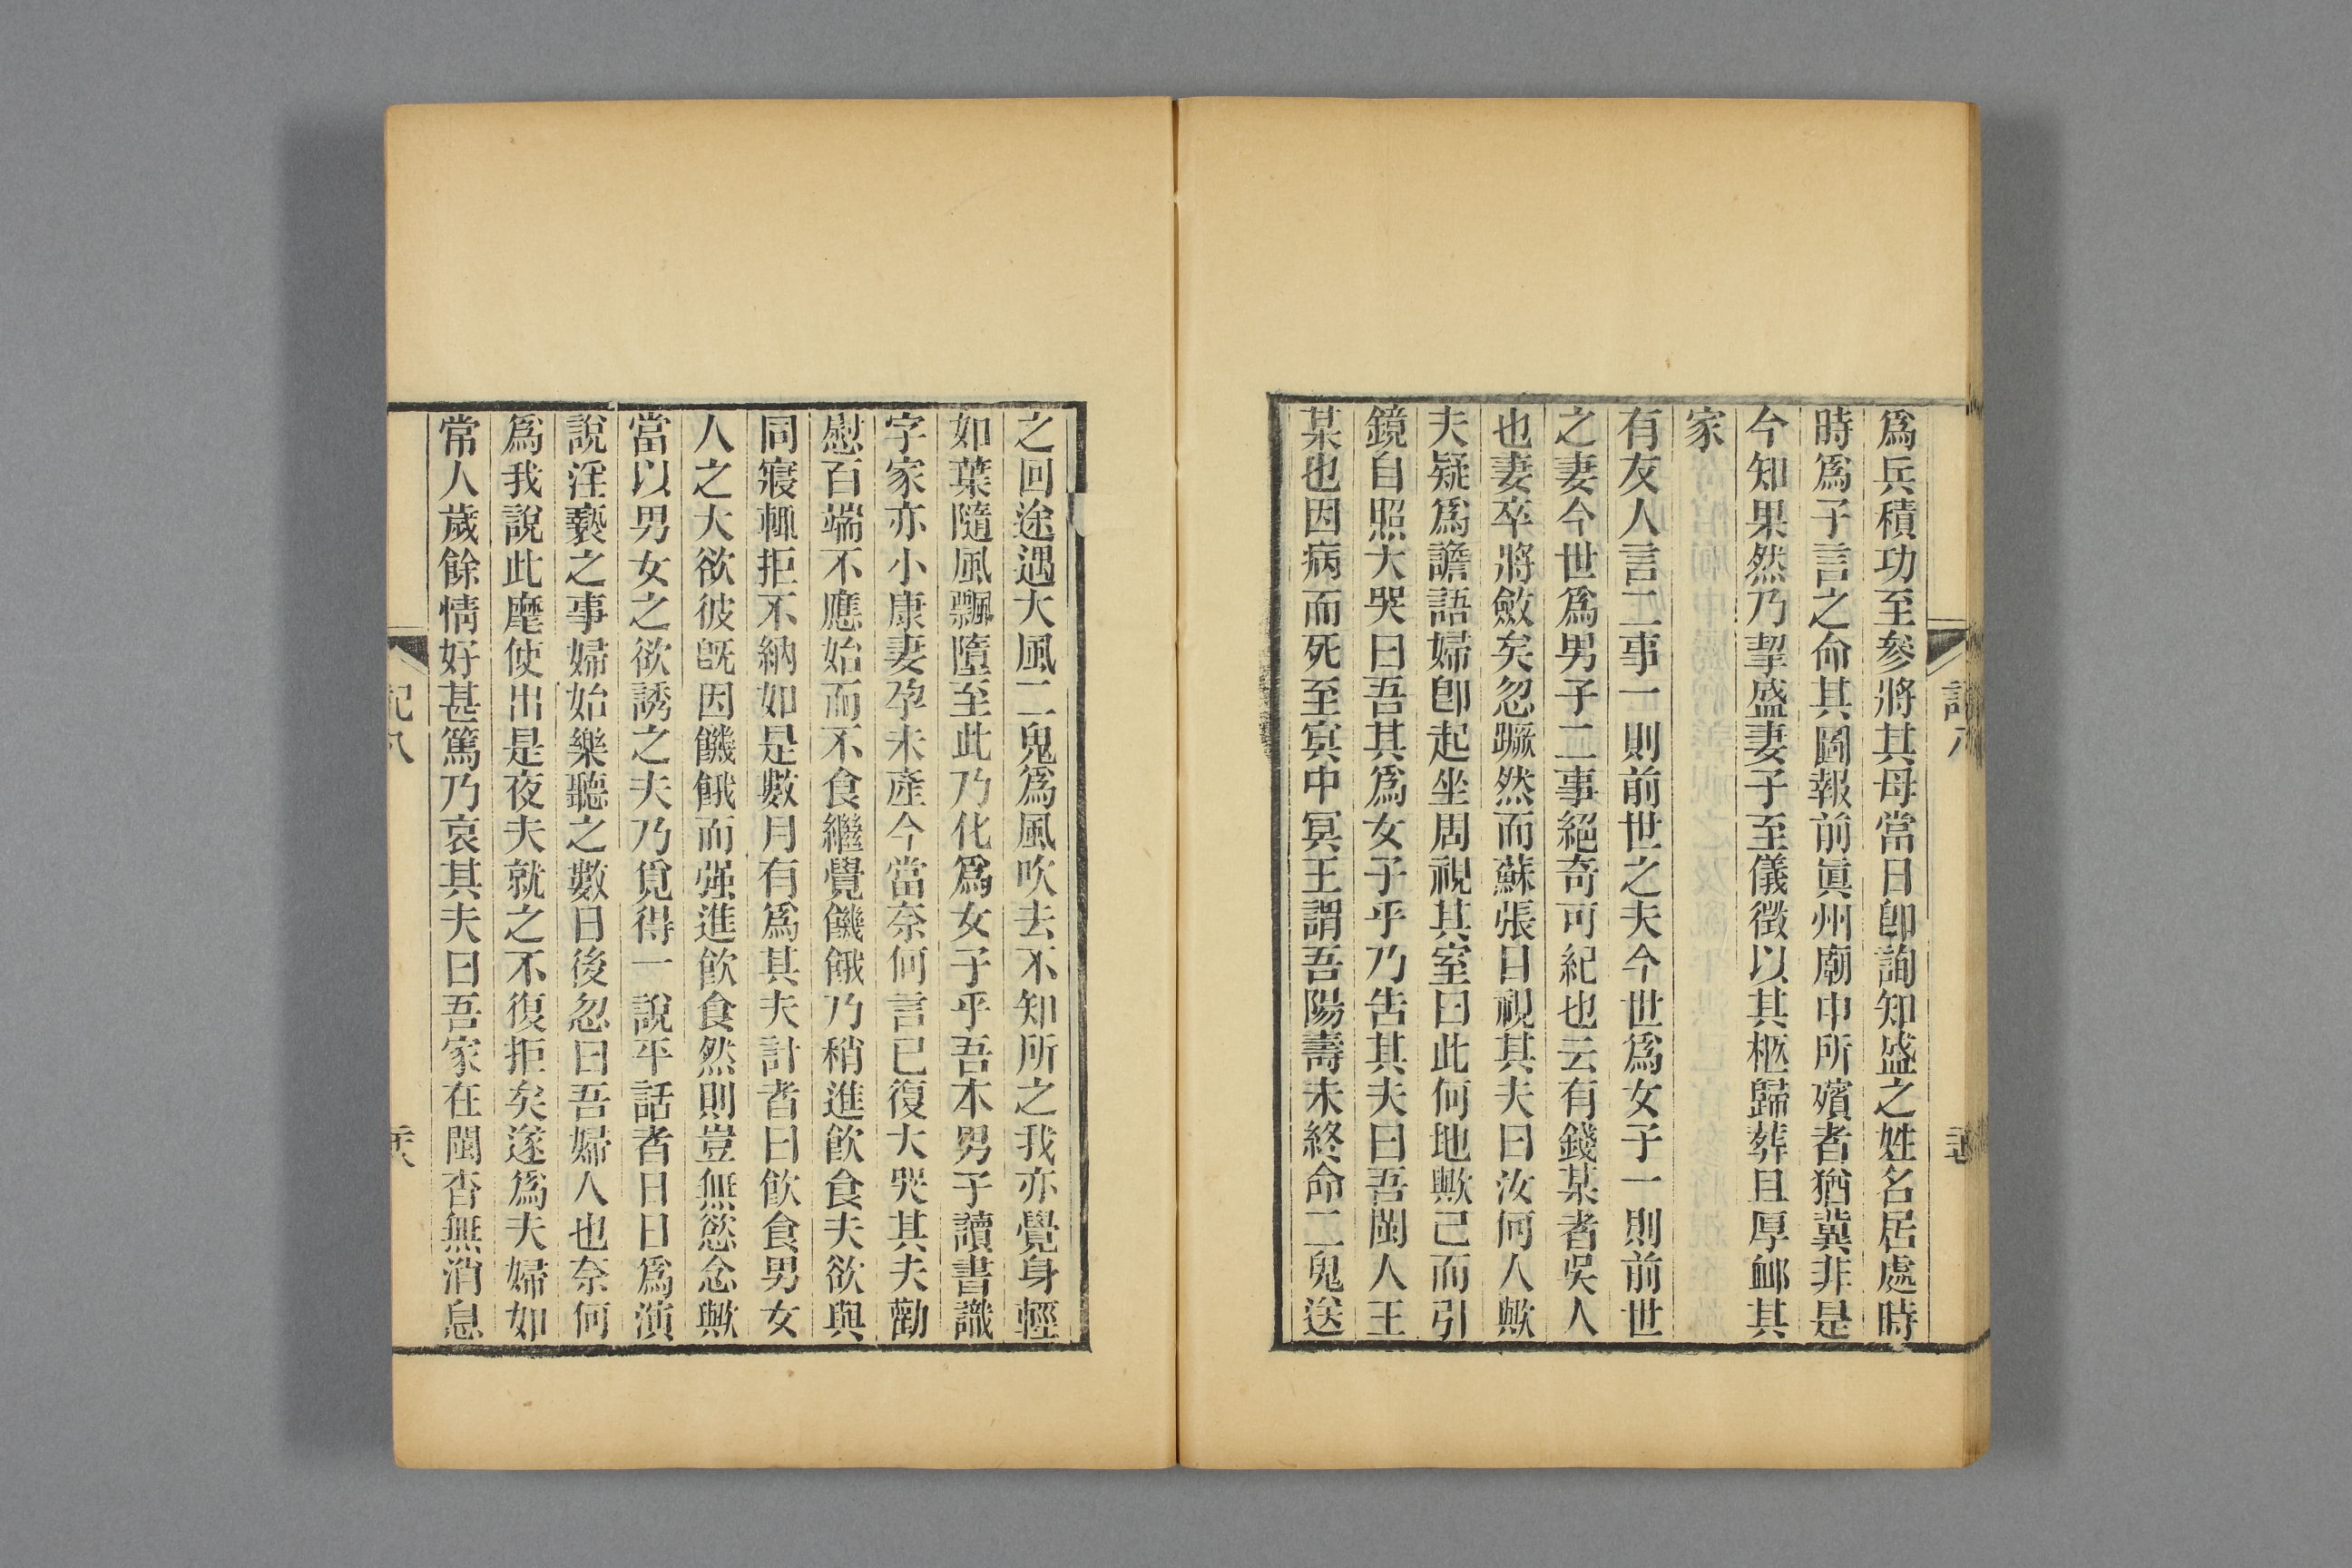 爲兵積功至參將其母當日卽詢知盛之姓名居處時
時爲子言之命其圖報前眞州廟中所殯者猶冀非是
今知果然乃挈盛妻子至儀徵以其柩歸葬且厚䘏其
家
有友人言二事一則前世之夫今世爲女子一則前世
之妻今世爲男子二事絕奇可紀也云有錢某者吳人
也妻卒將斂矣忽蹶然而蘇張目視其夫曰汝何人歟
夫疑爲譫語婦卽起坐周視其室曰此何地歟已而引
鏡自照大哭曰吾其爲女子乎乃吿其夫曰吾閩人王
某也因病而死至冥中冥王謂吾陽壽未終命二鬼送
之回途遇大風二鬼爲風吹去不知所之我亦覺身輕
如葉隨風飄墮至此乃化爲女子乎吾本男子讀書識
字家亦小康妻孕未產今當奈何言已復大哭其夫勸
慰百端不應始而不食繼覺饑餓乃稍進飮食夫欲與
同寢輒拒不納如是數月有爲其夫計者曰飮食男女
人之大欲彼旣因饑餓而强進飮食然則豈無慾念歟
當以男女之欲誘之夫乃覓得一說平話者日日爲演
說淫褻之事婦始樂聽之數日後忽曰吾婦人也奈何
爲我說此麾使出是夜夫就之不復拒矣遂爲夫婦如
常人歲餘情好甚篤乃哀其夫曰吾家在閩杳無消息
記八